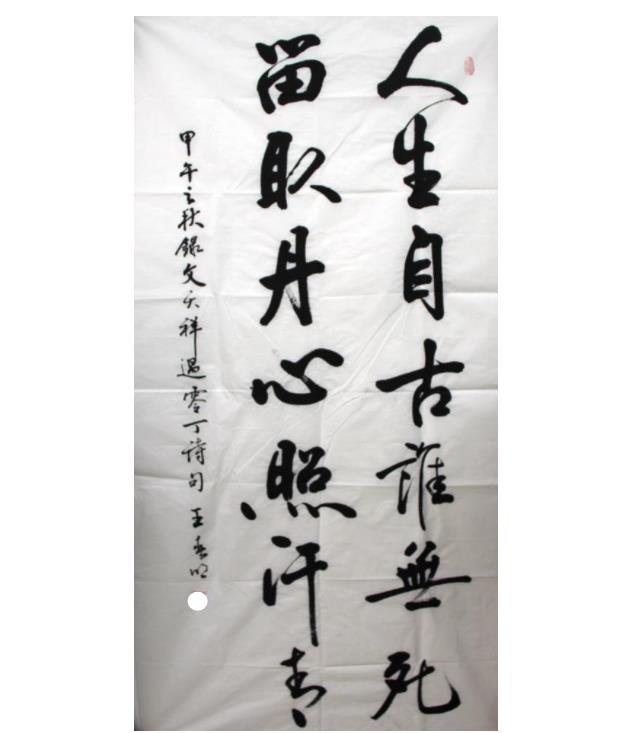 人生自古誰無死
留取丹心照汗青
甲午之秋錄文天祥過零丁诗句 王春明